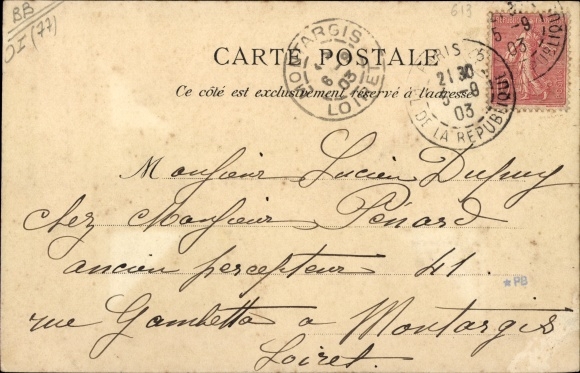 BB
OI (77)
613
CARTE POSTALE
Ce côté est exclusivement réservé à l'adresse
MONTARGIS
6 -9
03
LOIRET
PARIS
21 30
5 -9
03
DE LA REPUBLIQUE
5 -9
03
Monsieur Lucien Dupuy
chez Monsieur Pénard
ancien percepteur 41.
rue Gambetta a Montargis
Loiret.
*PB